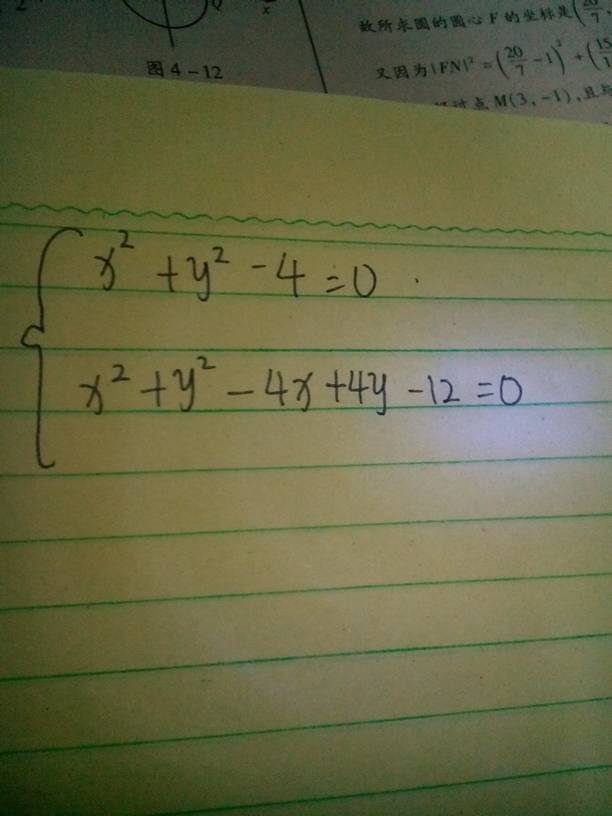 图4-12
故所求圆的圆心F的坐标是(20/7,
又因为|FN|²=(20/7-1)²+(15
点M(3,-1),且与
x²+y²-4=0
x²+y²-4x+4y-12=0